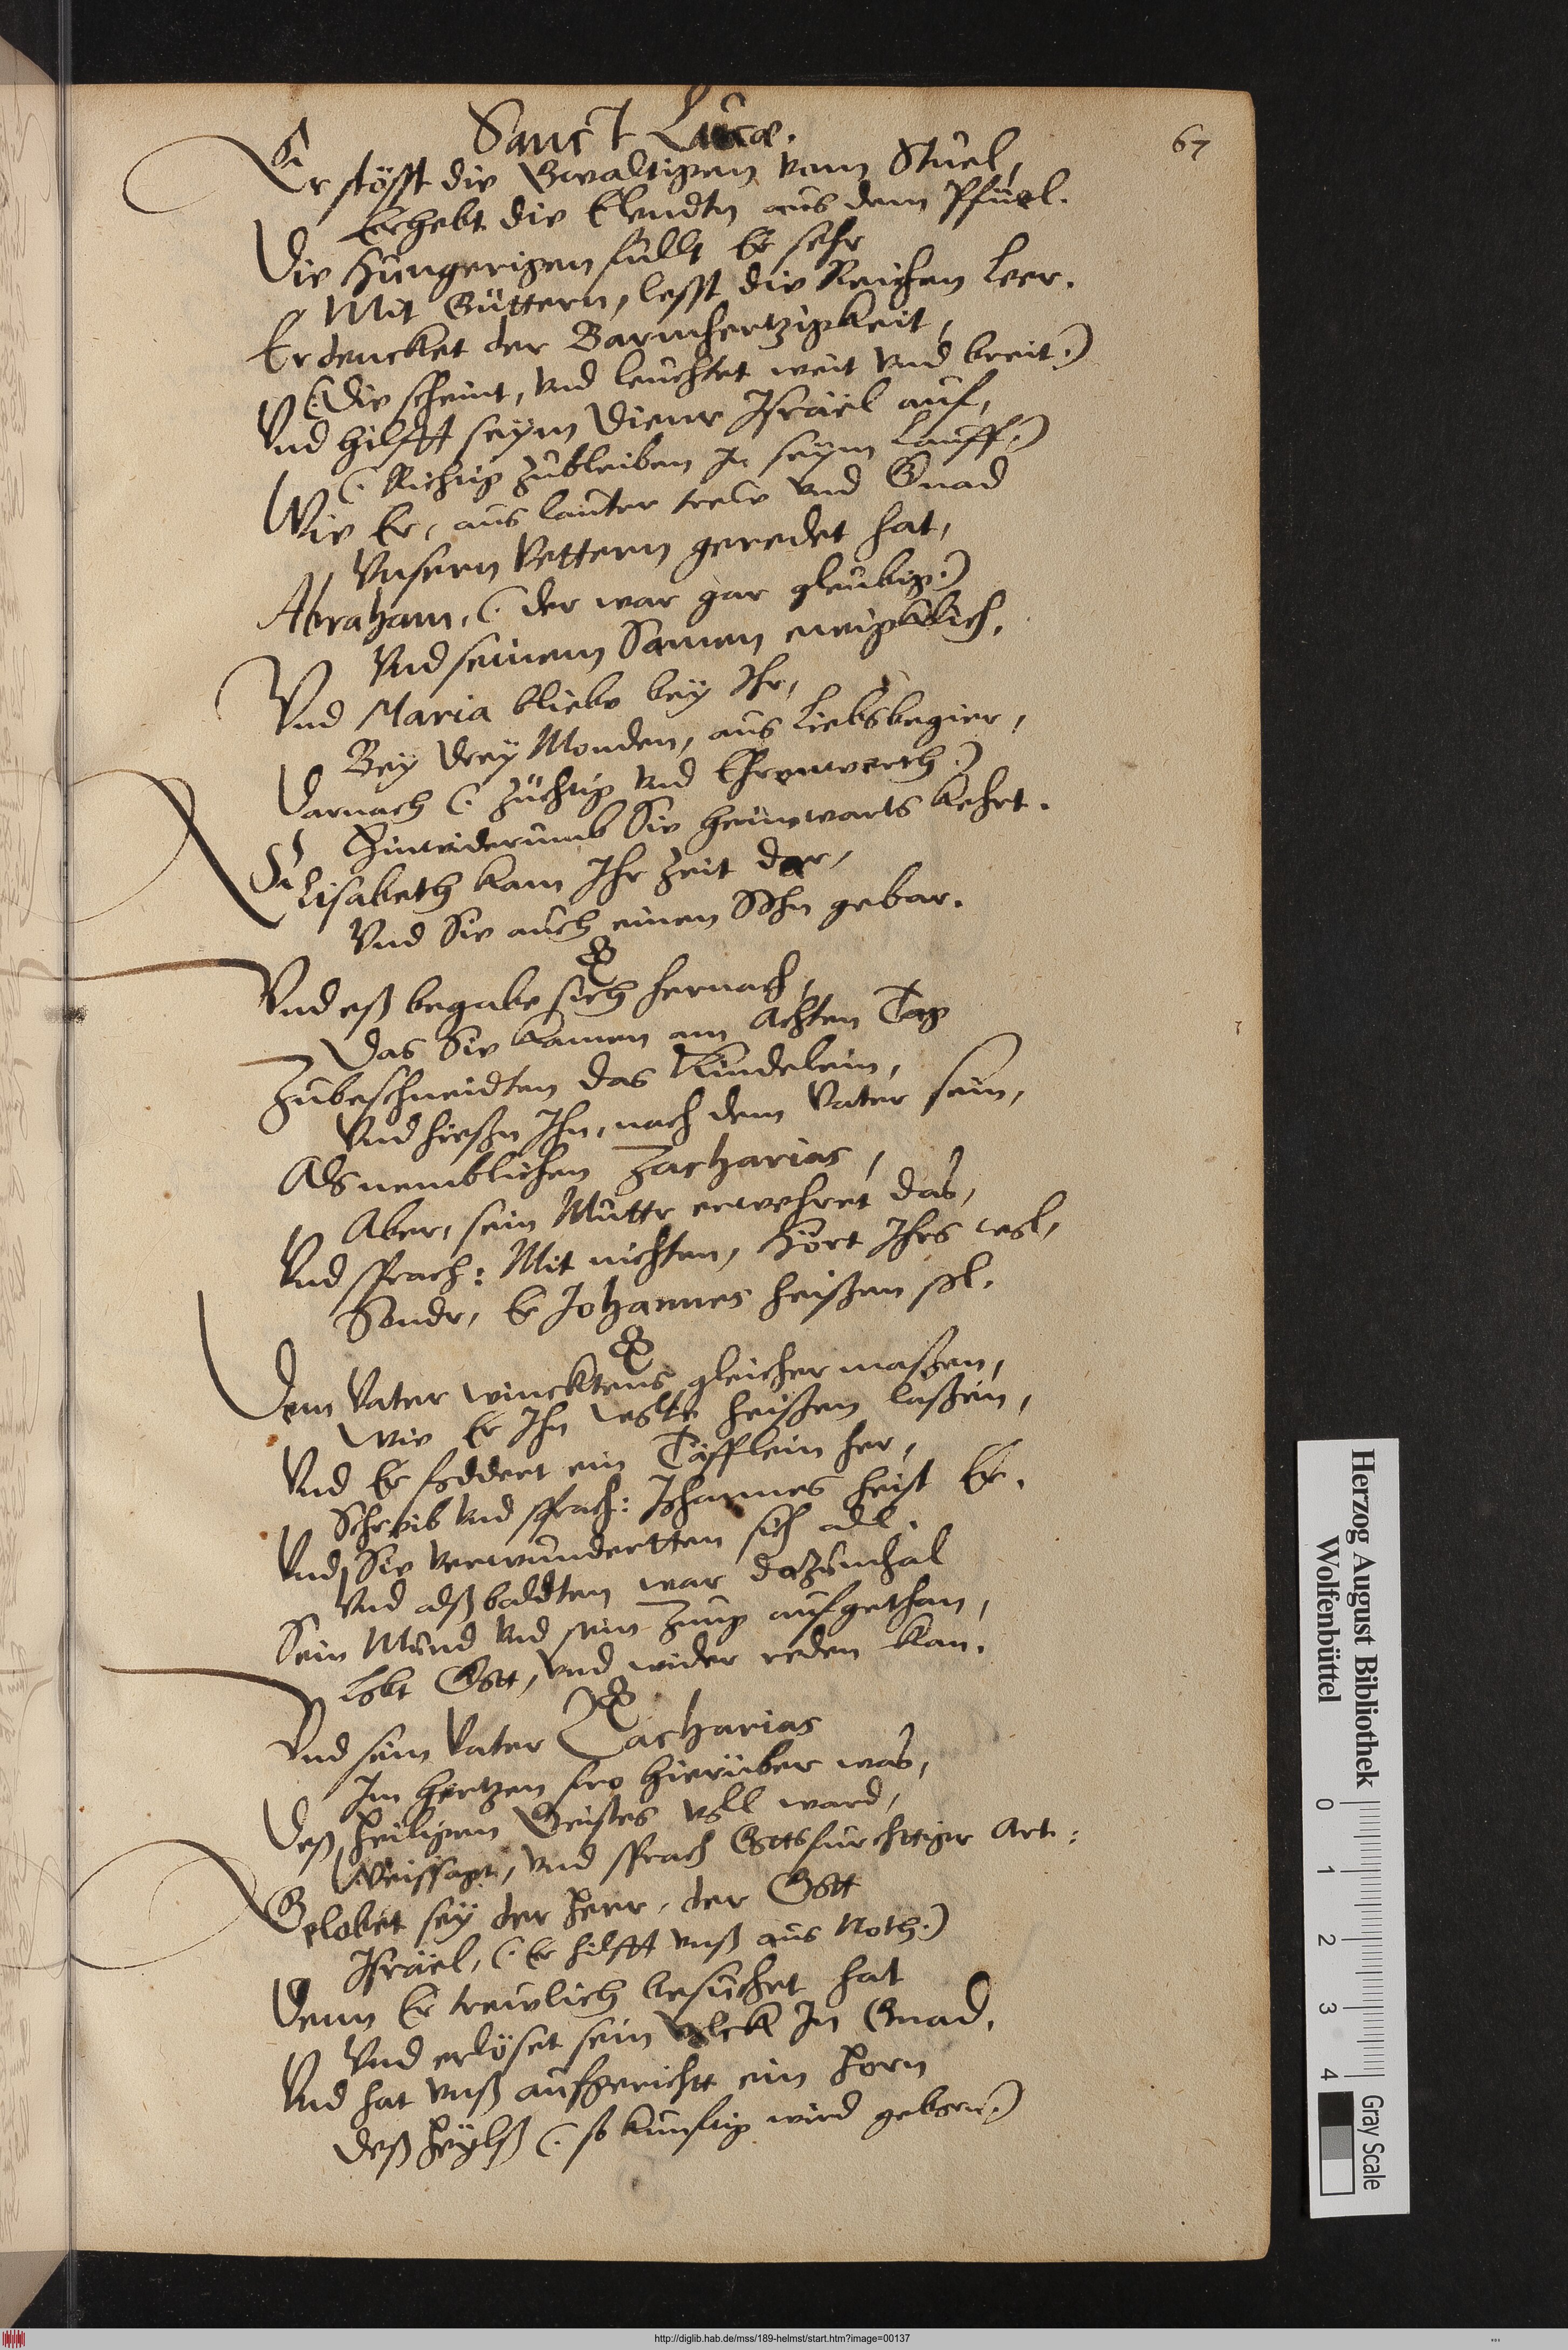 Sanct Lucæ.
67
Er stösst die Gwaltigen vom Stuel,
Erhebt die Elendtn aus dem Pfuel.
Die Hungerigen füllt Er sehr
Mit Güttern, lesst die Reichen leer.
Er dencket der Barmhertzigkeit,
(: Die scheint, vnd leuchtet weit vnd breit :)
Vnd hilfft seym Diener Israël auf,
(: Richtig zubleiben In seym Lauff :)
Wie Er, aus lauter trew vnd Gnad
Vnsern Vettern geredet hat,
Abraham, (: der war gar gleubig :)
Vnd seinem Samen ewigklich.
Vnd Maria bliebe bey Ihr,
Bey drey Monden, aus Liebsbegier,
Darnach (: züchtig vnd Ehrenwerth :)
Hinwiderumb Sie heimwarts kehrt.
Elisabeth kam Ihr Zeit dar,
Vnd Sie auch einen Sohn gebar.
Vnd eß begabe sich hernach,
Das Sie kamen am Achten Tag
Zubeschneidten das Kindelein,
Vnd hießn Ihn, nach dem Vater sein,
Als nemblichen Zacharias,
Aber, sein Mutter erwehret das,
Vnd sprach: Mit nichten, Hört Ihrs wol,
Sondr, Er Johannes heißen sol.
Dem Vater wincktens gleicher maßen,
Wie Er Ihn wolte heißen laßen,
Vnd Er foddert ein Täfflein her,
Schreib vnd sprach: Johannes heist Er.
Vnd Sie verwundertten sich all.
Vnd alßbaldten war dazumhal
Sein Mund vnd sein Zung aufgethan,
Lobt Gott, vnd wider reden kan.
Vnd sein Vater Zacharias
Im hertzen fro hierüber was,
Deß Heiligen Geistes voll ward,
Weissagt, vnd sprach Gottsfurchttiger Art:
Gelobet sey der Herr, der Gott
Israël, (: Er hilfft vnß aus Noth :)
Denn Er trewlich besuchet hat
Vnd erlöset sein Volck In Gnad,
Vnd hat vnß aufgericht ein Horn
Deß Heylß (: so kunftig wird geborn :)
Herzog August Bibliothek
Wolfenbüttel
0 1 2 3 4
Gray Scale
http://diglib.hab.de/mss/189-helmst/start.htm?image=00137